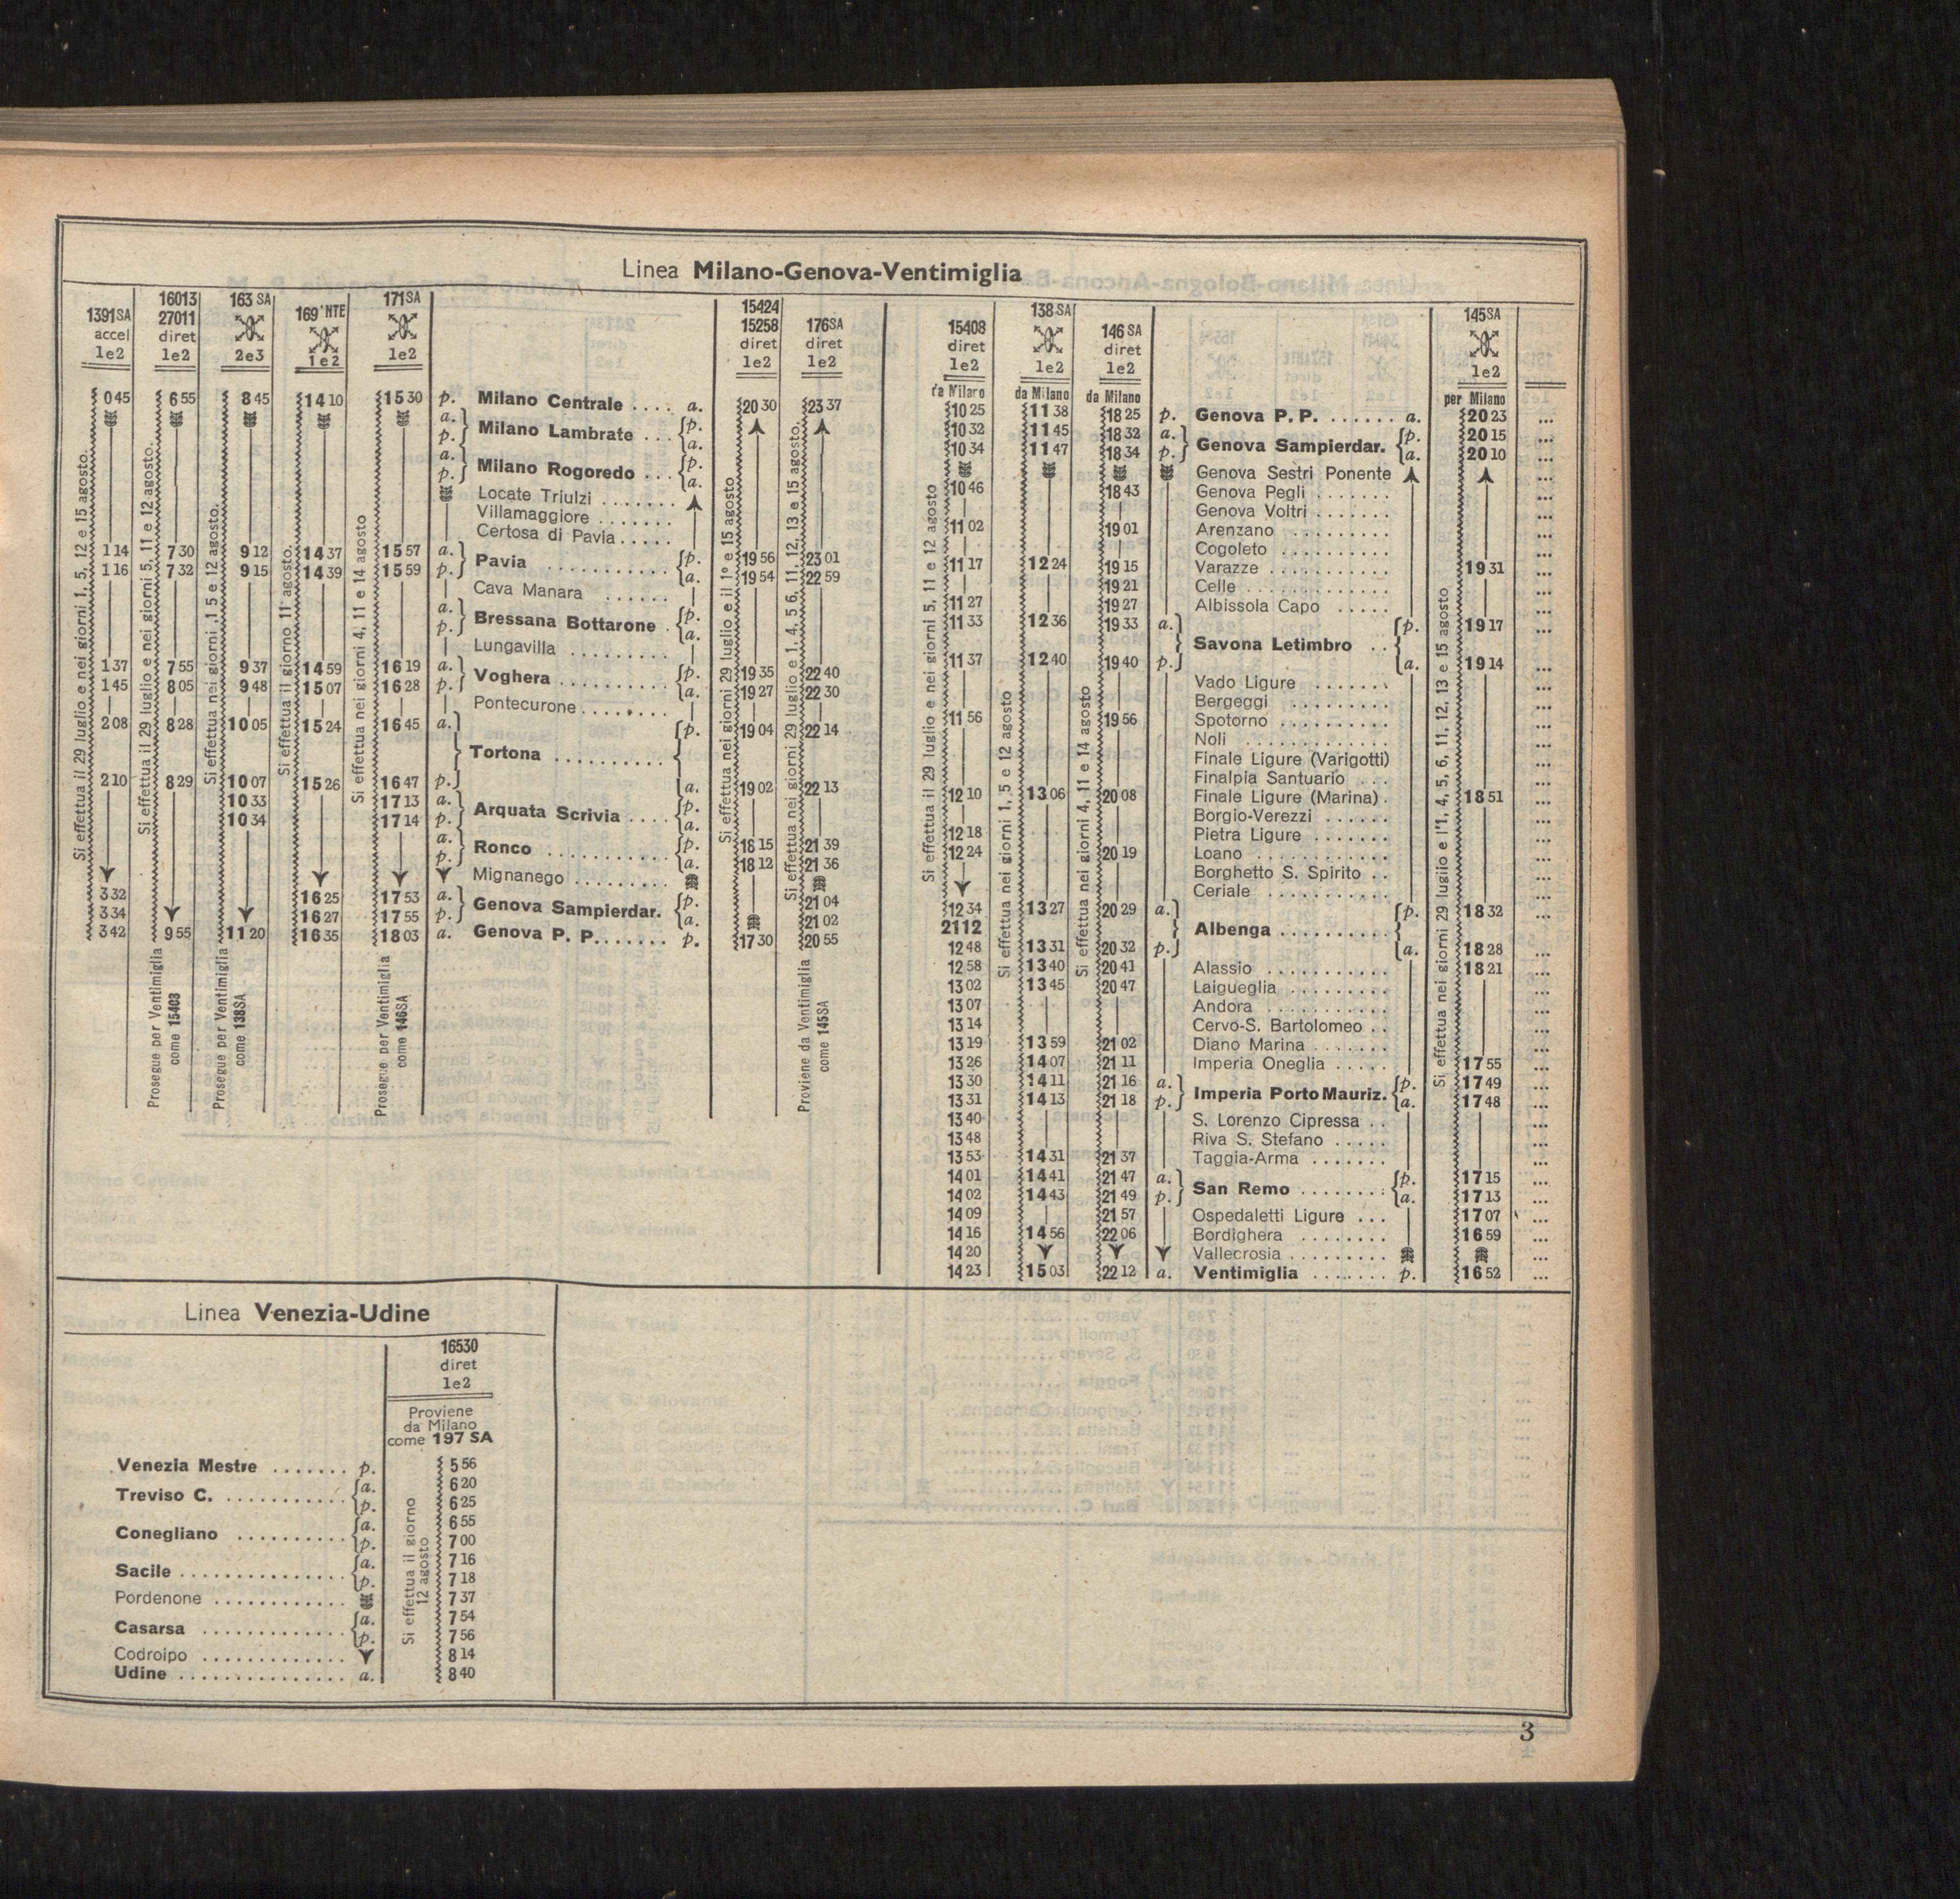 Linea Milano-Genova-Ventimiglia
1391SA accel 1e2
16013 27011 diret 1e2
163 SA 2e3
169 NTE 1e2
171SA 1e2
15424 15258 diret 1e2
176SA diret 1e2
0 45 6 55 8 45 14 10 15 30 p. Milano Centrale .... a. 20 30 23 37
a. p. Milano Lambrate ... p. a.
a. p. Milano Rogoredo ... p. a.
Locate Triulzi .......
Villamaggiore .......
Certosa di Pavia .....
1 14 7 30 9 12 14 37 15 57 a. Pavia ........... p. 19 56 23 01
1 16 7 32 9 15 14 39 15 59 p. a. 19 54 22 59
Cava Manara ......
a. p. Bressana Bottarone . p. a.
Lungavilla .........
1 37 7 55 9 37 14 59 16 19 a. Voghera .......... p. 19 35 22 40
1 45 8 05 9 48 15 07 16 28 p. a. 19 27 22 30
Pontecurone ........
2 08 8 28 10 05 15 24 16 45 a. p. 19 04 22 14
Tortona ..........
2 10 8 29 10 07 15 26 16 47 p. a. 19 02 22 13
10 33 17 13 a. Arquata Scrivia .... p.
10 34 17 14 p. a.
a. Ronco ........... p. 18 15 21 39
p. a. 18 12 21 36
Mignanego .........
3 32 16 25 17 53 a. Genova Sampierdar. p. 21 04
3 34 16 27 17 55 p. a. 21 02
3 42 9 55 11 20 16 35 18 03 a. Genova P. P. ...... p. 17 30 20 55
Si effettua il 29 luglio e nei giorni 1, 5, 12 e 15 agosto.
Si effettua il 29 luglio e nei giorni 5, 11 e 12 agosto.
Si effettua nei giorni ,1 5 e 12 agosto.
Si effettua il giorno 11 agosto.
Si effettua nei giorni 4, 11 e 14 agosto
Si effettua nei giorni 29 luglio e il 1º e 15 agosto
Si effettua nei giorni 29 luglio e 1, 4, 5 6, 11, 12, 13 e 15 agosto.
Prosegue per Ventimiglia
come 15403
Prosegue per Ventimiglia
come 138SA
Prosegue per Ventimiglia
come 146SA
Proviene da Ventimiglia
come 145SA
15408 diret 1e2 da Milano
138 SA 1e2 da Milano
146 SA diret 1e2 da Milano
145SA 1e2 per Milano
10 25 11 38 18 25 p. Genova P. P. ...... a. 20 23 ...
10 32 11 45 18 32 a. Genova Sampierdar. p. 20 15 ...
10 34 11 47 18 34 p. a. 20 10 ...
Genova Sestri Ponente ...
10 46 18 43 Genova Pegli ....... ...
Genova Voltri ....... ...
11 02 19 01 Arenzano ......... ...
Cogoleto .......... ...
11 17 12 24 19 15 Varazze ........... 19 31 ...
19 21 Celle ............. ...
11 27 19 27 Albissola Capo ..... ...
11 33 12 36 19 33 a. p. 19 17 ...
Savona Letimbro .. ...
11 37 12 40 19 40 p. a. 19 14 ...
Vado Ligure ....... ...
Bergeggi ......... ...
11 56 19 56 Spotorno .......... ...
Noli ............. ...
Finale Ligure (Varigotti) ...
Finalpia Santuario ... ...
12 10 13 06 20 08 Finale Ligure (Marina) . 18 51 ...
Borgio-Verezzi ...... ...
12 18 Pietra Ligure ....... ...
12 24 20 19 Loano ............ ...
Borghetto S. Spirito .. ...
Ceriale ........... ...
12 34 13 27 20 29 a. p. 18 32 ...
2112 Albenga .......... ...
12 48 13 31 20 32 p. a. 18 28 ...
12 58 13 40 20 41 Alassio ........... 18 21 ...
13 02 13 45 20 47 Laigueglia ......... ...
13 07 Andora ........... ...
13 14 Cervo-S. Bartolomeo .. ...
13 19 13 59 21 02 Diano Marina ....... ...
13 26 14 07 21 11 Imperia Oneglia ..... 17 55 ...
13 30 14 11 21 16 a. Imperia Porto Mauriz. p. 17 49 ...
13 31 14 13 21 18 p. a. 17 48 ...
13 40 S. Lorenzo Cipressa .. ...
13 48 Riva S. Stefano ..... ...
13 53 14 31 21 37 Taggia-Arma ....... ...
14 01 14 41 21 47 a. San Remo ........ p. 17 15 ...
14 02 14 43 21 49 p. a. 17 13 ...
14 09 21 57 Ospedaletti Ligure ... 17 07 ...
14 16 14 56 22 06 Bordighera ........ 16 59 ...
14 20 Vallecrosia ......... ...
14 23 15 03 22 12 a. Ventimiglia ....... p. 16 52 ...
Si effettua il 29 luglio e nei giorni 5, 11 e 12 agosto
Si effettua nei giorni 1, 5 e 12 agosto
Si effettua nei giorni 4, 11 e 14 agosto
Si effettua nei giorni 29 luglio e l'1, 4, 5, 6, 11, 12, 13 e 15 agosto
Linea Venezia-Udine
16530
diret
1e2
Proviene
da Milano
come 197 SA
Venezia Mestre ....... p. 5 56
Treviso C. ........... a. 6 20
p. 6 25
Conegliano .......... a. 6 55
p. 7 00
Sacile ............... a. 7 16
p. 7 18
Pordenone ............ 7 37
Casarsa ............. a. 7 54
p. 7 56
Codroipo ............. 8 14
Udine ................ a. 8 40
Si effettua il giorno
12 agosto
3